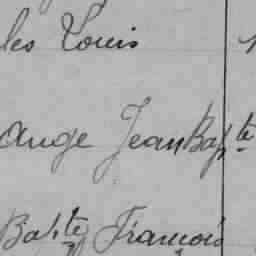 les Louis
ange Jean Bapte
Bapte François